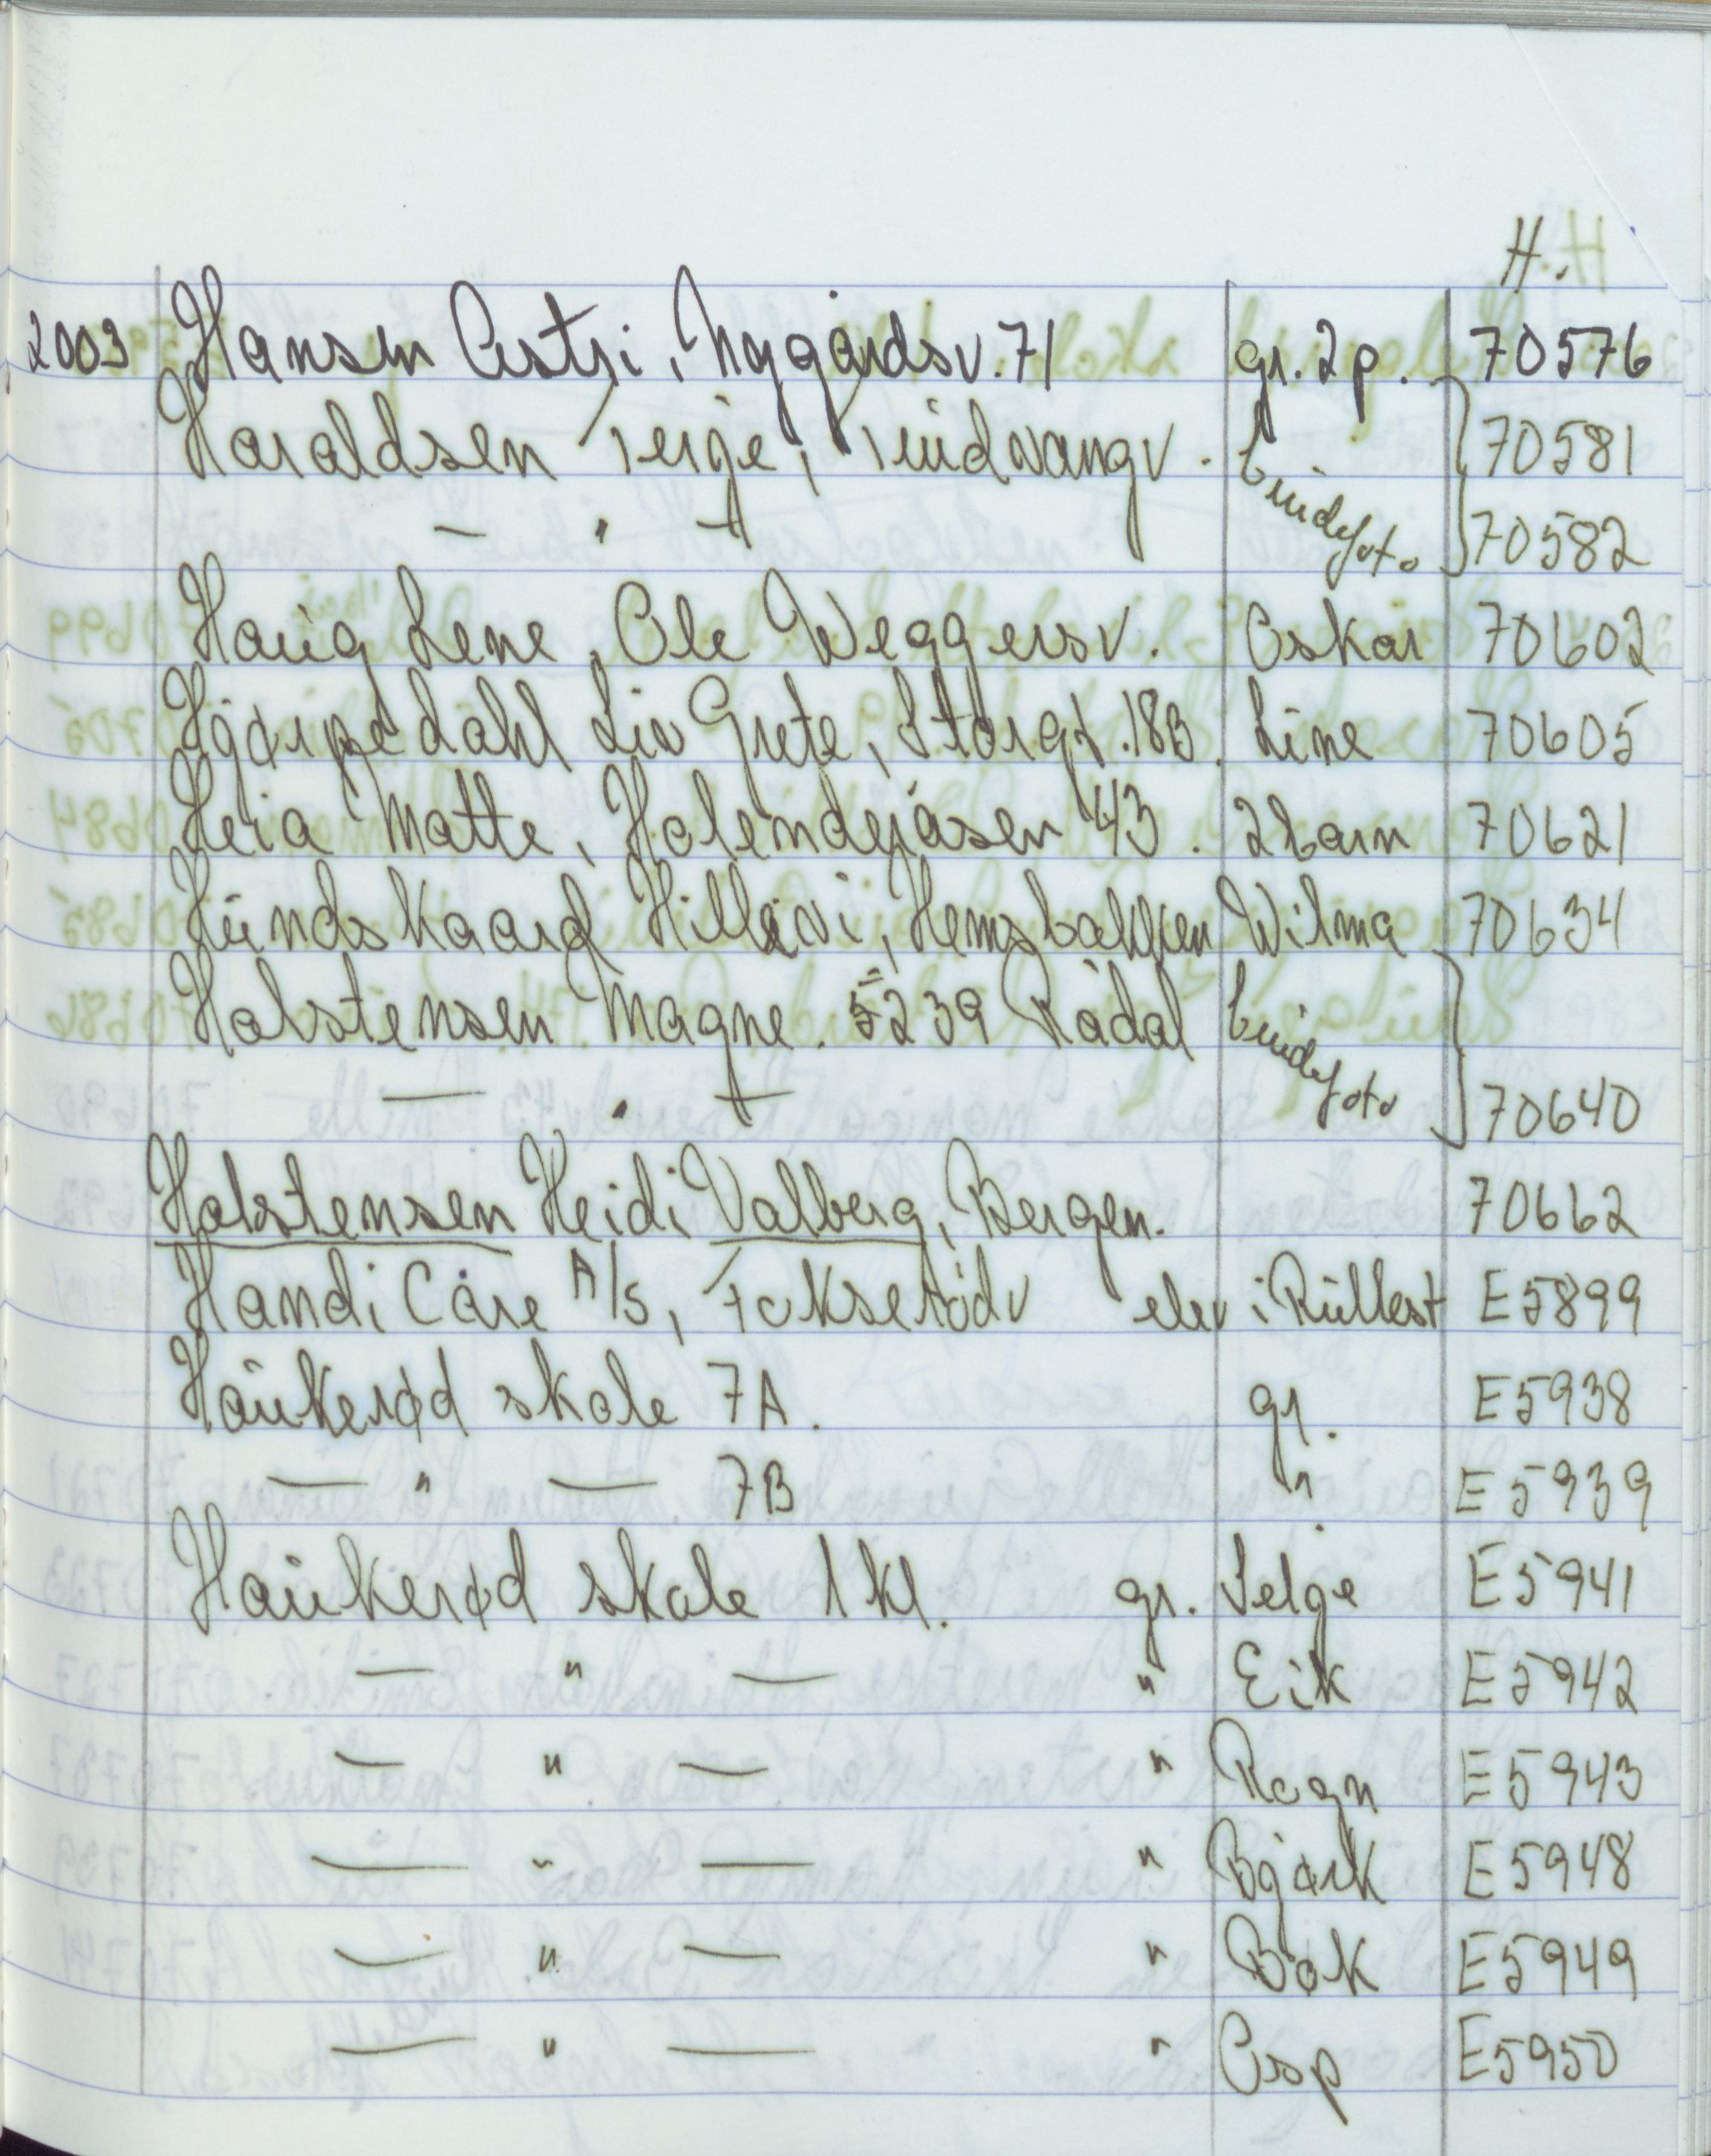 H.
2003 Hansen Astri, Nygårdsv. 71 gr. 2 p. 70576
Haraldsen Terje, Lindvangv. brudefoto 70581
— " — 70582
Haug Lene, Ole Weggersv. Oskar 70602
Hjørpedahl Liv Grete, Storgt. 183. Line 70605
Heia Mette, 43. 2 barn 70621
Hundskaard Hillevi, Hemsbakken Wilma 70634
Holstensen Magne. 5239 Rådal brudefoto
— " — 70640
Holstensen Heidi Valberg, Bergen. 70662
Handi Care A/S, Fokserødv elev i Rullest E5899
Haukerød skole 7A. gr. E5938
— " — 7B " E5939
Haukerød skole 1 kl. gr. Selje E5941
— " — " Eik E5942
— " — " Rogn E5943
— " — " Bjørk E5948
— " — " Bøk E5949
— " — " Osp E5950